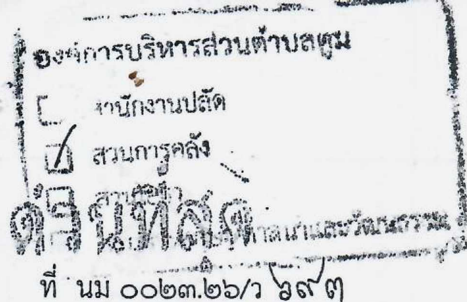 องค์การบริหารส่วนตำบลตูม
สำนักงานปลัด
ส่วนการคลัง
ด่วนที่สุด
ที่ นม ๐๐๒๓.๒๖/ว ๖๙๓